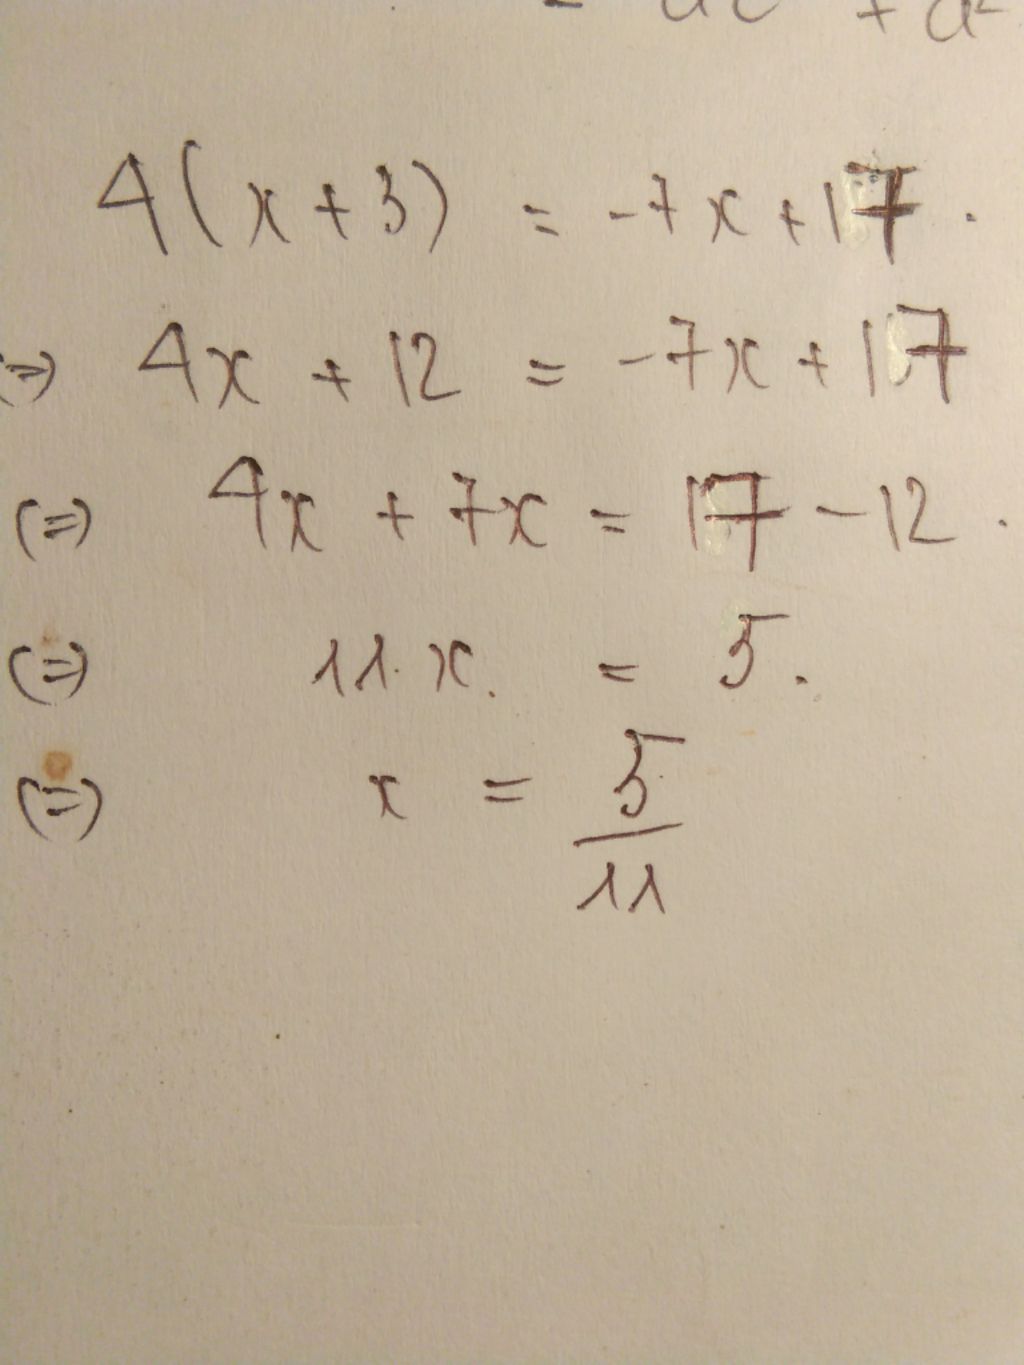 4(x+3) = -7x+17.
(=) 4x + 12 = -7x+17
(=) 4x + 7x = 17-12.
(=) 11.x. = 5.
(=) x = 5/11